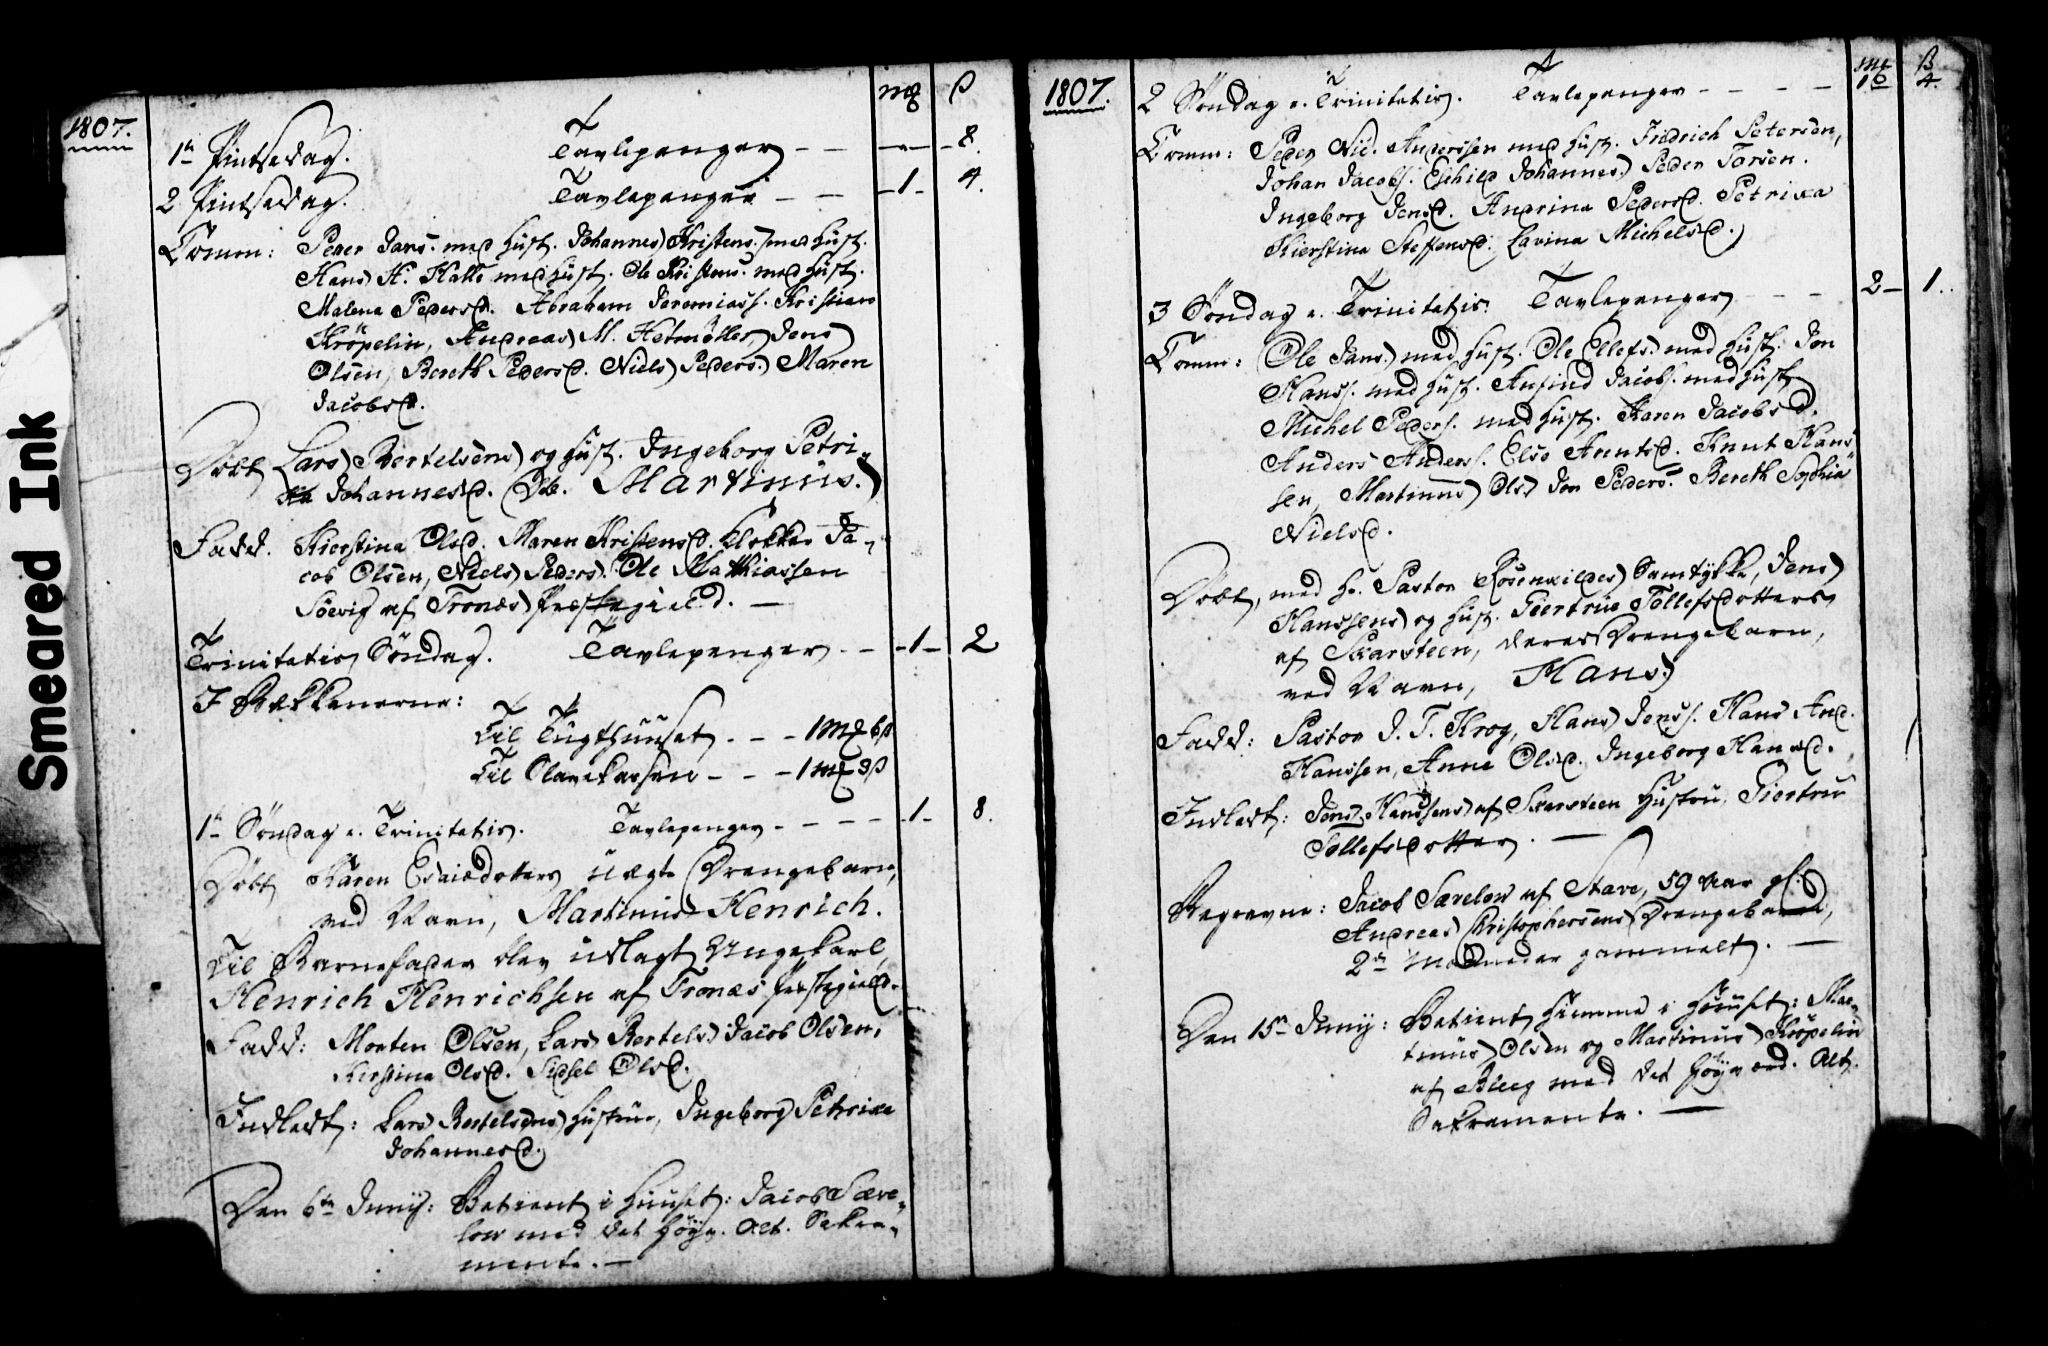 Smeared Ink
1807. mꝣ ß
1te Pintsedag. Tavlepenger – – – 8.
2 Pintsedag. Tavlepenger – – 1 – 4.
Comm: Peder Jans. med Hust. Johannes Kristens. med Hust.
Hans H. Hatte med Hust. Ole Kristens. med Hust.
Malena Pedersd. Abraham Jeremiass. Kristian
Kröpelin, Andreas M. Hetmöller, Jens
Olsen, Bereth Pedersd. Niels Peders. Maren
Jacobsd.
Döbt Lars Bertelsens og Hust. Ingeborg Petri-
Johannesd. Db. Martinus.
Fadd. Kierstina Olsd. Maren Kristensd. Klokker Ja-
cob Olsen, Niels Peders. Ole Matthiassen
Söevig af Tronæs Præstegield. –
Trinitatis Söndag. Tavlepenger – – 1 – 2
I Bekkenerne:
Til Tugthuuset – – – 1 mꝣ 6 ß
Til – – – 1 mꝣ 3 ß
1te Söndag e. Trinitatis. Tavlepenger – – – – 1 – 8.
Döbt Karen Esaiædotters uægte Drengebarn,
ved Navn, Martinus Henrich.
Til Barnefader blev udlagt Ungekarl
Henrich Henrichsen af Tronæs Præstegield.
Fadd: Morten Olsen, Lars Bertels. Jacob Olsen,
Kierstina Olsd. Sidsel Olsd.
Indledt: Lars Bertelsens Hustrue, Ingeborg Petrixe
Johannesd.
Den 6te Junij: Betient i Huuset: Jacob Sære-
low med det Høyv. Alt. Sakra-
mente. –
1807. mꝣ ß
2 Söndag e. Trinitatis. Tavlepenger – – – – 4.
Comm: Peder Nic. Anderssen med Hust. Fredrich Petersen,
Johan Jacobs. Eschild Johannes. Peder Torsen.
Ingeborg Jensd. Andrina Pedersd. Petrixa
Kierstina Steffensd. Lavina Michelsd.
3 Söndag e. Trinitatis. Tavlepenger – – – 2 – 1.
Comm: Ole Jans. med Hust. Ole Ellefs. med Hust. Jon
Hanss. med Hust. Anfind Jacobs. med Hust.
Michel Peders. med Hust. Karen Jacobsd.
Anders Anders. Else Arentsd. Knut Hans-
sen, Martinus Ols. Jon Peders. Bereth Sophia
Nielsd.
Döbt, med Hr. Pastor Rosenvildes Samtykke, Jens
Hanssens og Hust. Giertrue Tollefsdotters
af Skarsteen, deres Drengebarn,
ved Navn, Hans.
Fadd: Pastor J. T. Krog, Hans Jenss. Hans And.
Hanssen, Anne Olsd. Ingeborg Hansd.
Indledt: Jens Hanssens af Skarsteen Hustru, Giertru
Tollefsdotter. –
Begravne: Jacob Særelow af Stave, 59 Aar gl.
Andreas Kristophersens Drengebarn,
2de Maaneder gammelt. –
Den 15de Junij: Betient hiemme i Huuset: Mar-
tinus Olsen og Martinus Kröpelin
af Bleeg med det Høyværd. Alt.
Sakramente. –